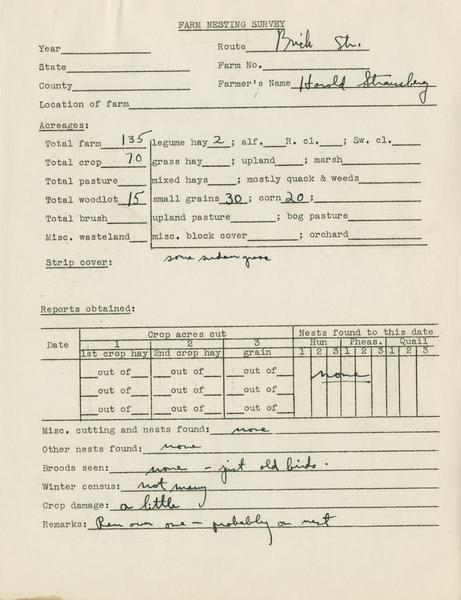 FARM NESTING SURVEY
Year Route Brick Str.
State Farm No.
County Farmer's Name Harold Strausberg
Location of farm
Acreages:
Total farm 135 legume hay 2; alf. R. cl. ; Sw. cl.
Total crop 70 grass hay ; upland ; marsh
Total pasture mixed hays ; mostly quack & weeds
Total woodlot 15 small grains 30; corn 20;
Total brush upland pasture ; bog pasture
Misc. wasteland misc. block cover ; orchard
Strip cover: some sudan grass
Reports obtained:
Crop acres cut Nests found to this date
Date 1 2 3 Hun Pheas. Quail
1st crop hay 2nd crop hay grain 1 2 3 1 2 3 1 2 3
out of out of out of none
out of out of out of
out of out of out of
Misc. cutting and nests found: none
Other nests found: none
Broods seen: none - just old birds.
Winter census: not many
Crop damage: a little
Remarks: Ran over one - probably on nest